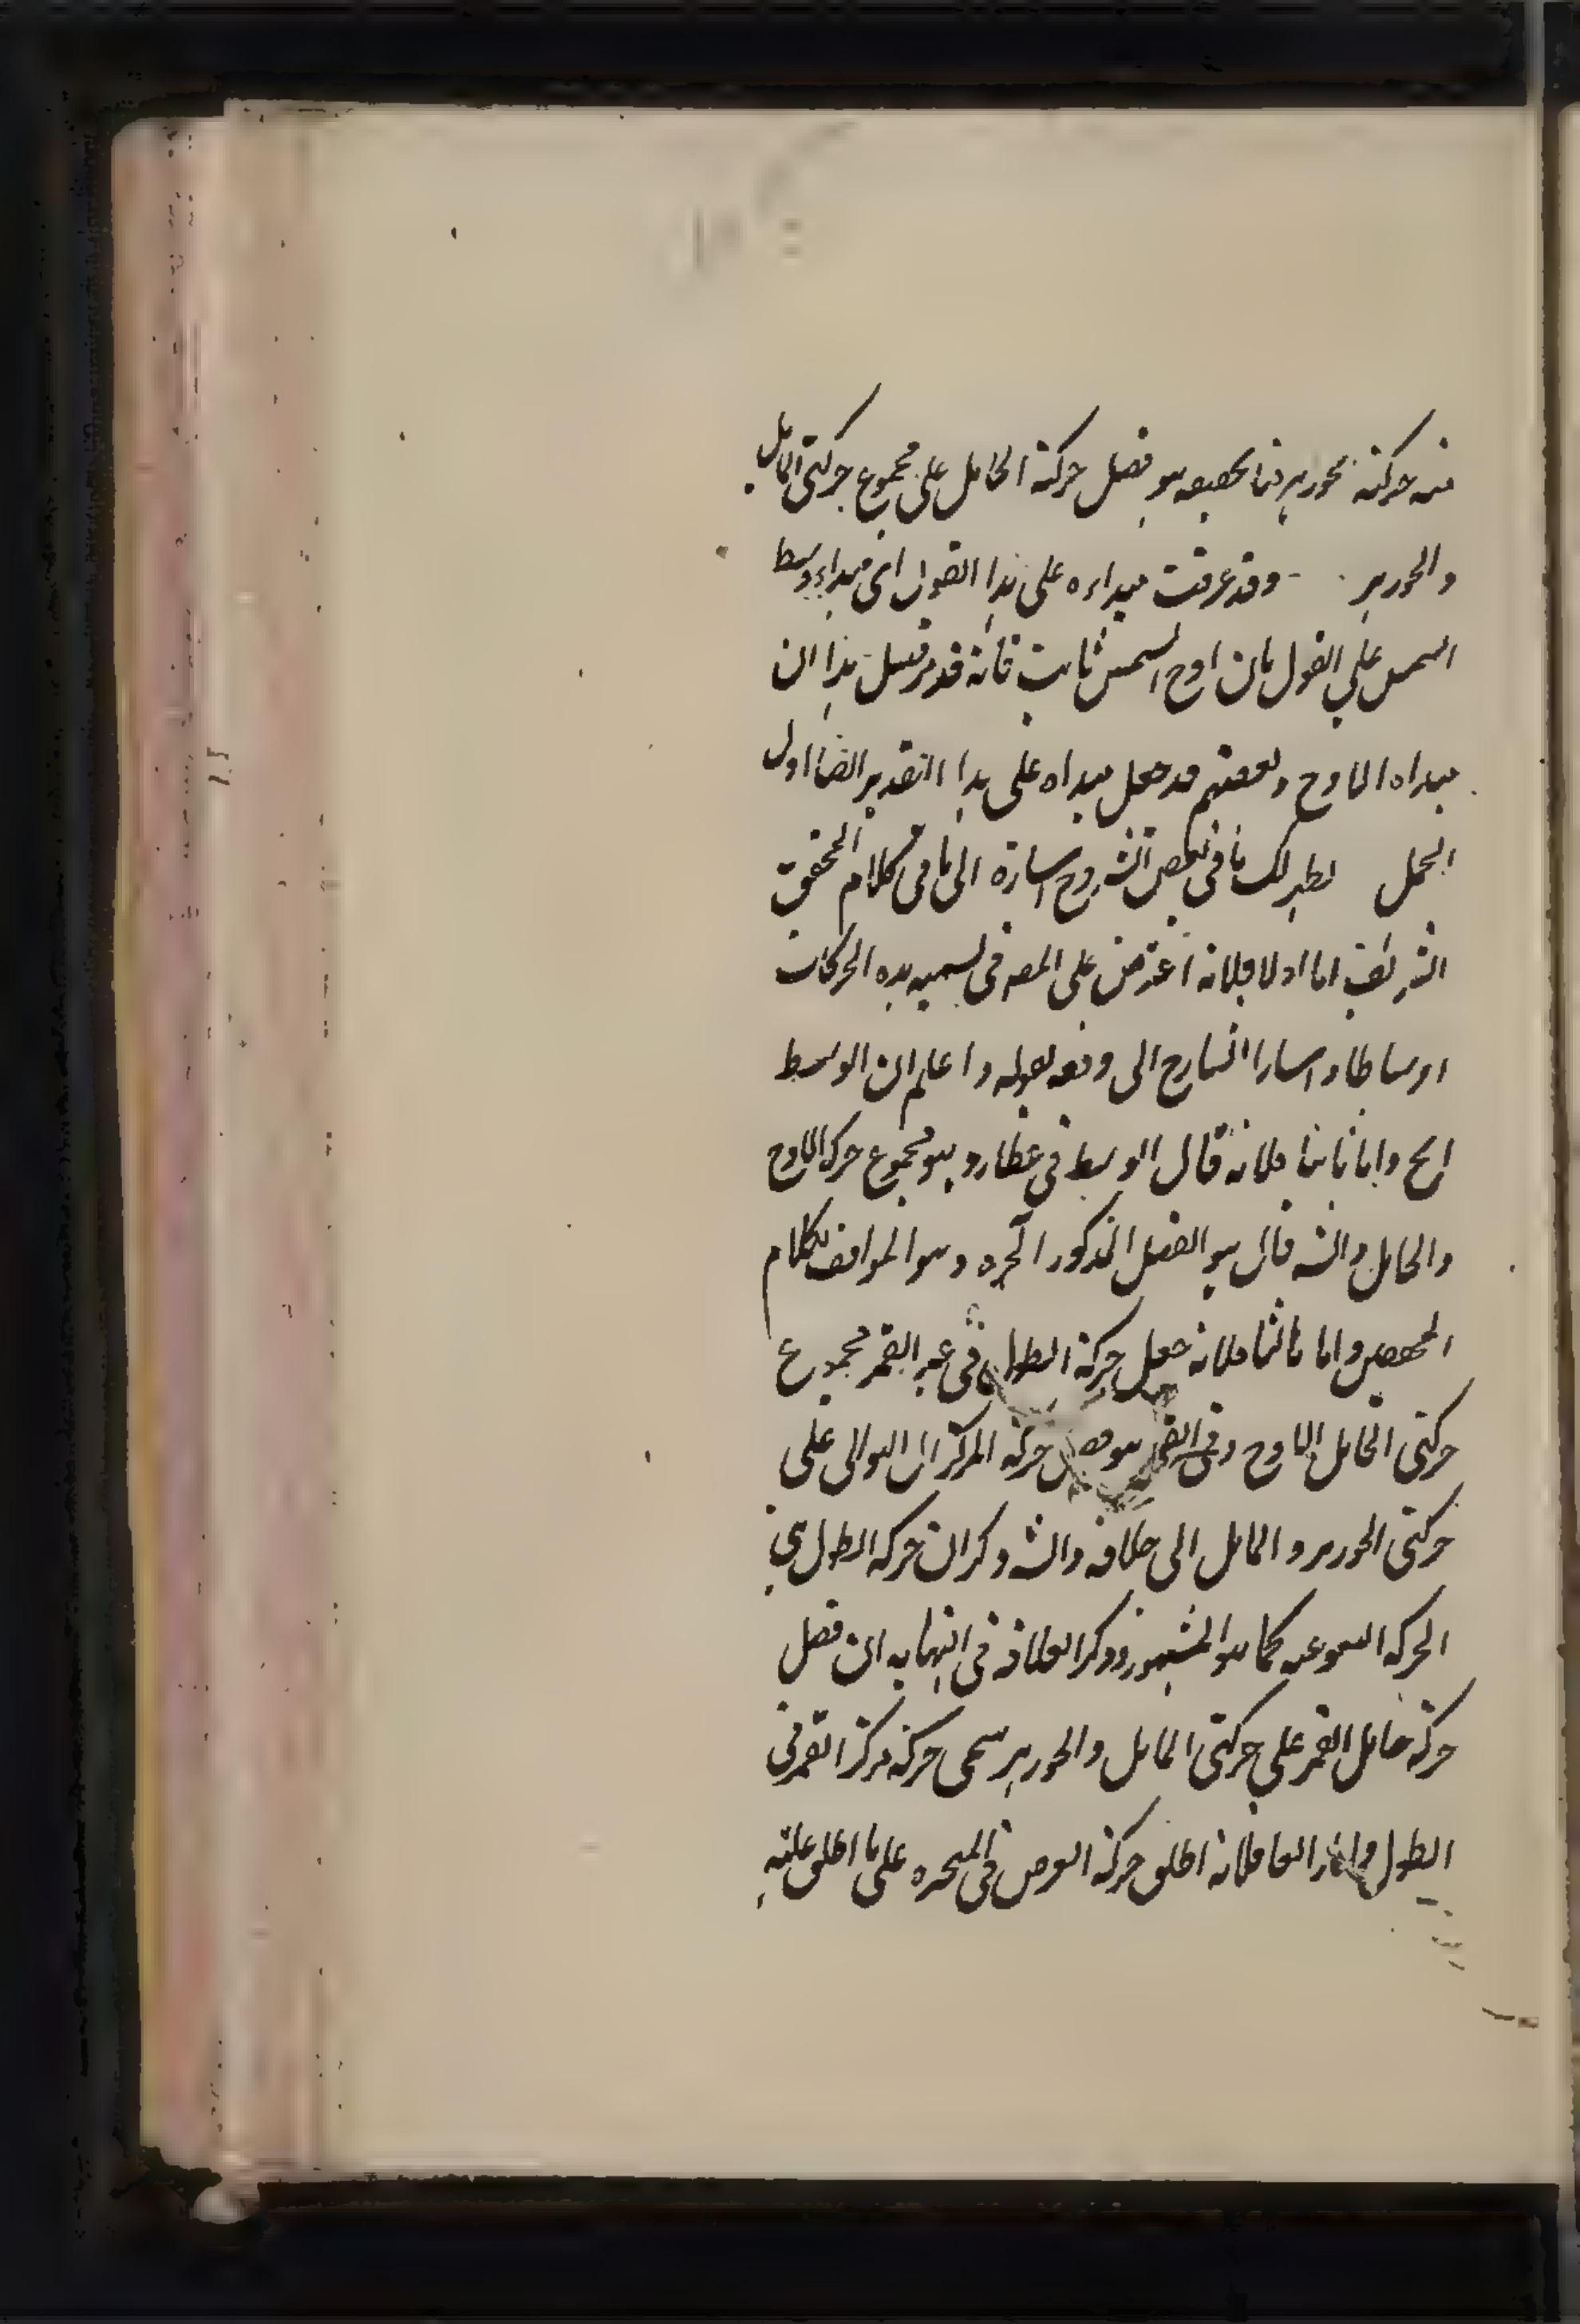 منه حركته بجوزهر فبالحقيقة هو فضل حركة الحامل على مجموع حركتى المايل
والجوزهر وقد عرفت مبداءه على هذا القول اى مبداء وسط
الشمس على القول بان اوج الشمس ثابت فانه قد مر قبيل هذا ان
مبداه الاوج وبعضهم قد جعل مبداه على هذا التقدير ايضا اول
الحمل يظهر لك ما فى بعض الشروح اشارة الى ما فى كلام المحقق
الشريف اما اولا فلانه اعترض على المصه فى تسميه هذه الحركات
اوساطا واشار الشارح الى دفعه بقوله واعلم ان الوسط
الخ واما ثانيا فلانه قال الوسط فى عطارد هو مجموع حركة الاوج
والحامل والشه قال هو الفضل المذكور آخره وهو الموافق لكلام
المحققين واما ثالثا فلانه جعل حركة الطول فى غير القمر مجموع
حركتى الحامل الاوج وفى القمر هو فضل حركة المركز الى التوالى على
حركتى الجوزهر والمايل الى خلافه والشه ذكر ان حركة الطول هى
الحركة التقويمية كما هو المشهور وذكر العلامة فى النهاية ان فضل
حركة حامل القمر على حركتى المايل والجوزهر يسمى حركة مركز القمر فى
الطول واما رابعا فلانه اطلق حركة العرض فى المتحيره على ما اطلق عليه